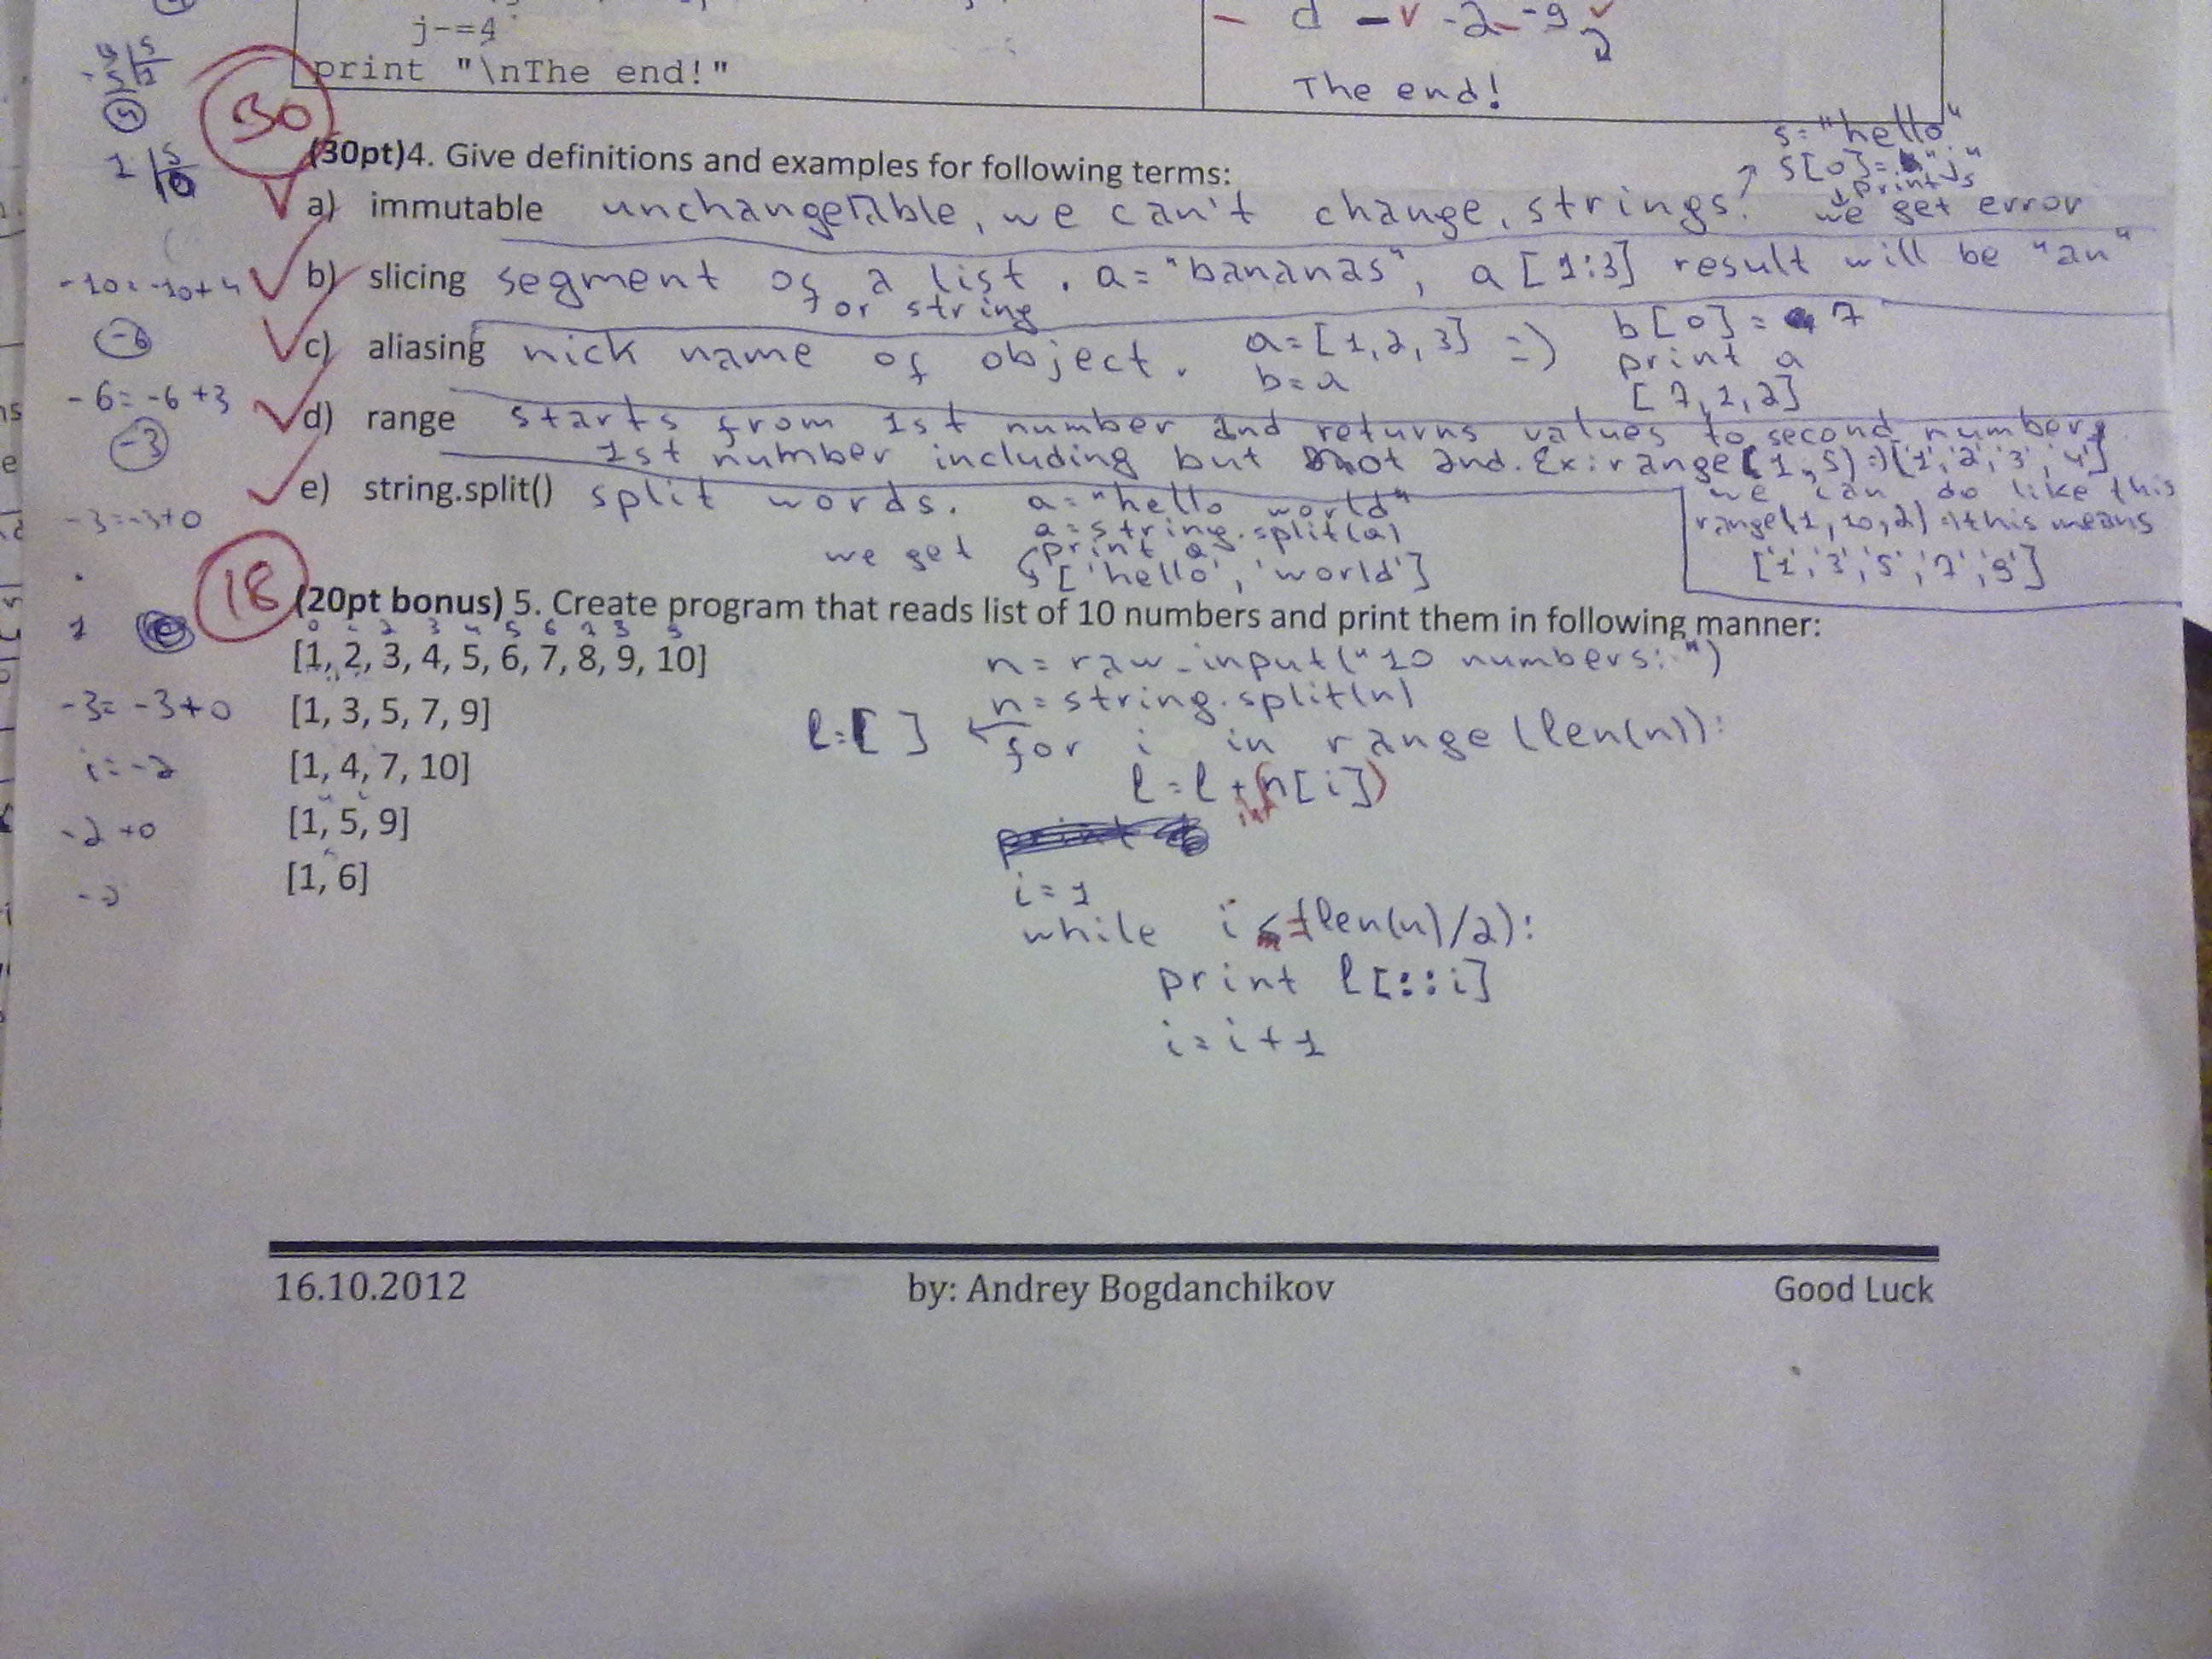 j-=4
print "\nThe end!"
- d - v -2 - -9
The end!
30
(30pt)4. Give definitions and examples for following terms:
s="hello"
s[0]="j"
print s
a) immutable unchangeable, we can't change, strings. we get error
b) slicing segment of a list. a="bananas", a[1:3] result will be "an"
or string
c) aliasing nick name of object. a=[1,2,3] =) b[0]=7
b=a print a
[7,2,3]
d) range starts from 1st number and returns values to second number,
1st number including but not 2nd. Ex: range(1,5)=)['1','2','3','4']
e) string.split() split words. a="hello world"
a=string.split(a)
print a
we get ['hello','world']
we can do like this
range(1,10,2)=)this means
['1','3','5','7','9']
18
(20pt bonus) 5. Create program that reads list of 10 numbers and print them in following manner:
0 1 2 3 4 5 6 7 8 9
[1, 2, 3, 4, 5, 6, 7, 8, 9, 10]
[1, 3, 5, 7, 9]
[1, 4, 7, 10]
[1, 5, 9]
[1, 6]
n=raw_input("10 numbers: ")
n=string.split(n)
l=[ ]
for i in range(len(n)):
l=l+int(n[i])
i=1
while i<=(len(n)/2):
print l[::i]
i=i+1
-10=-10+4
-6
-6=-6+3
-3
-3=-3+0
1
-3=-3+0
i=-2
-2+0
-2
16.10.2012 by: Andrey Bogdanchikov Good Luck